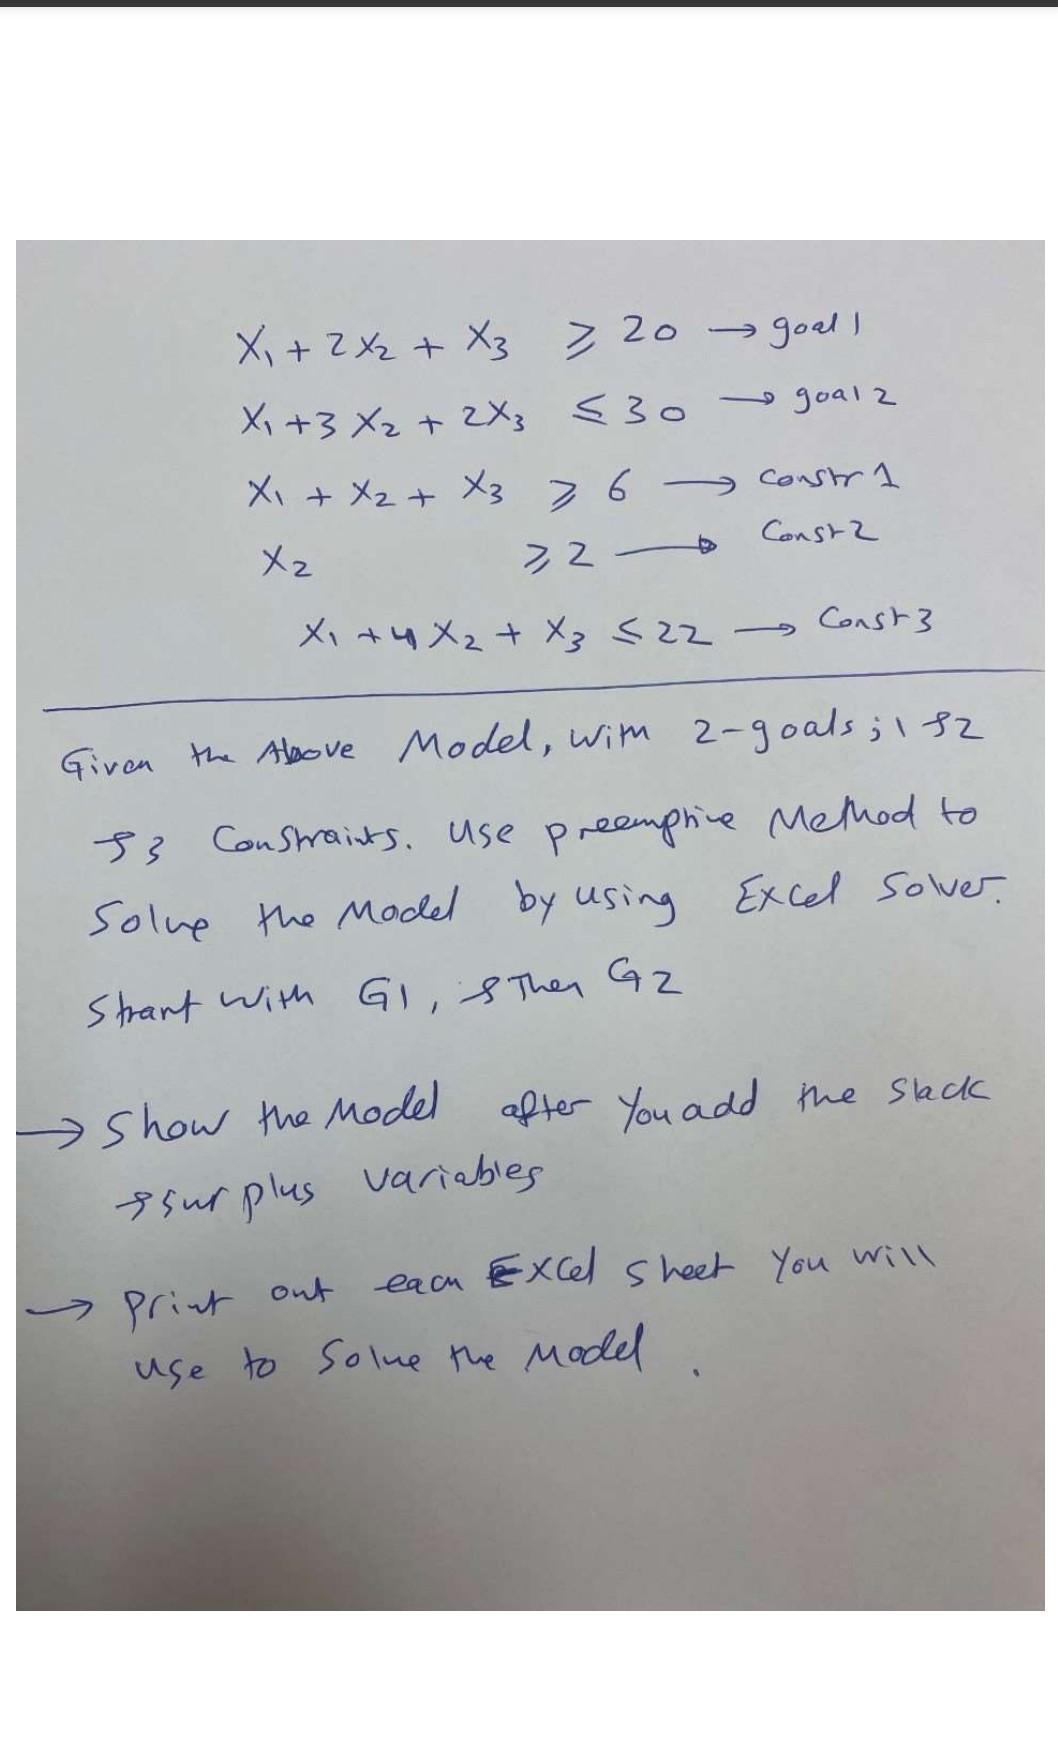 X₁ + 2X₂ + X₃ ⩾ 20 → goal 1
X₁ + 3X₂ + 2X₃ ≤ 30 → goal 2
X₁ + X₂ + X₃ ⩾ 6 → Constr 1
X₂ ⩾ 2 → Const 2
X₁ + 4X₂ + X₃ ≤ 22 → Const 3
Given the Above Model, with 2-goals; 1 & 2
& 3 Constraints. Use preemptive Method to
Solve the Model by using Excel Solver.
Strart with G1, & Then G2
→ Show the Model after You add the slack
& surplus variables
→ Print out each Excel sheet You will
use to Solve the Model.